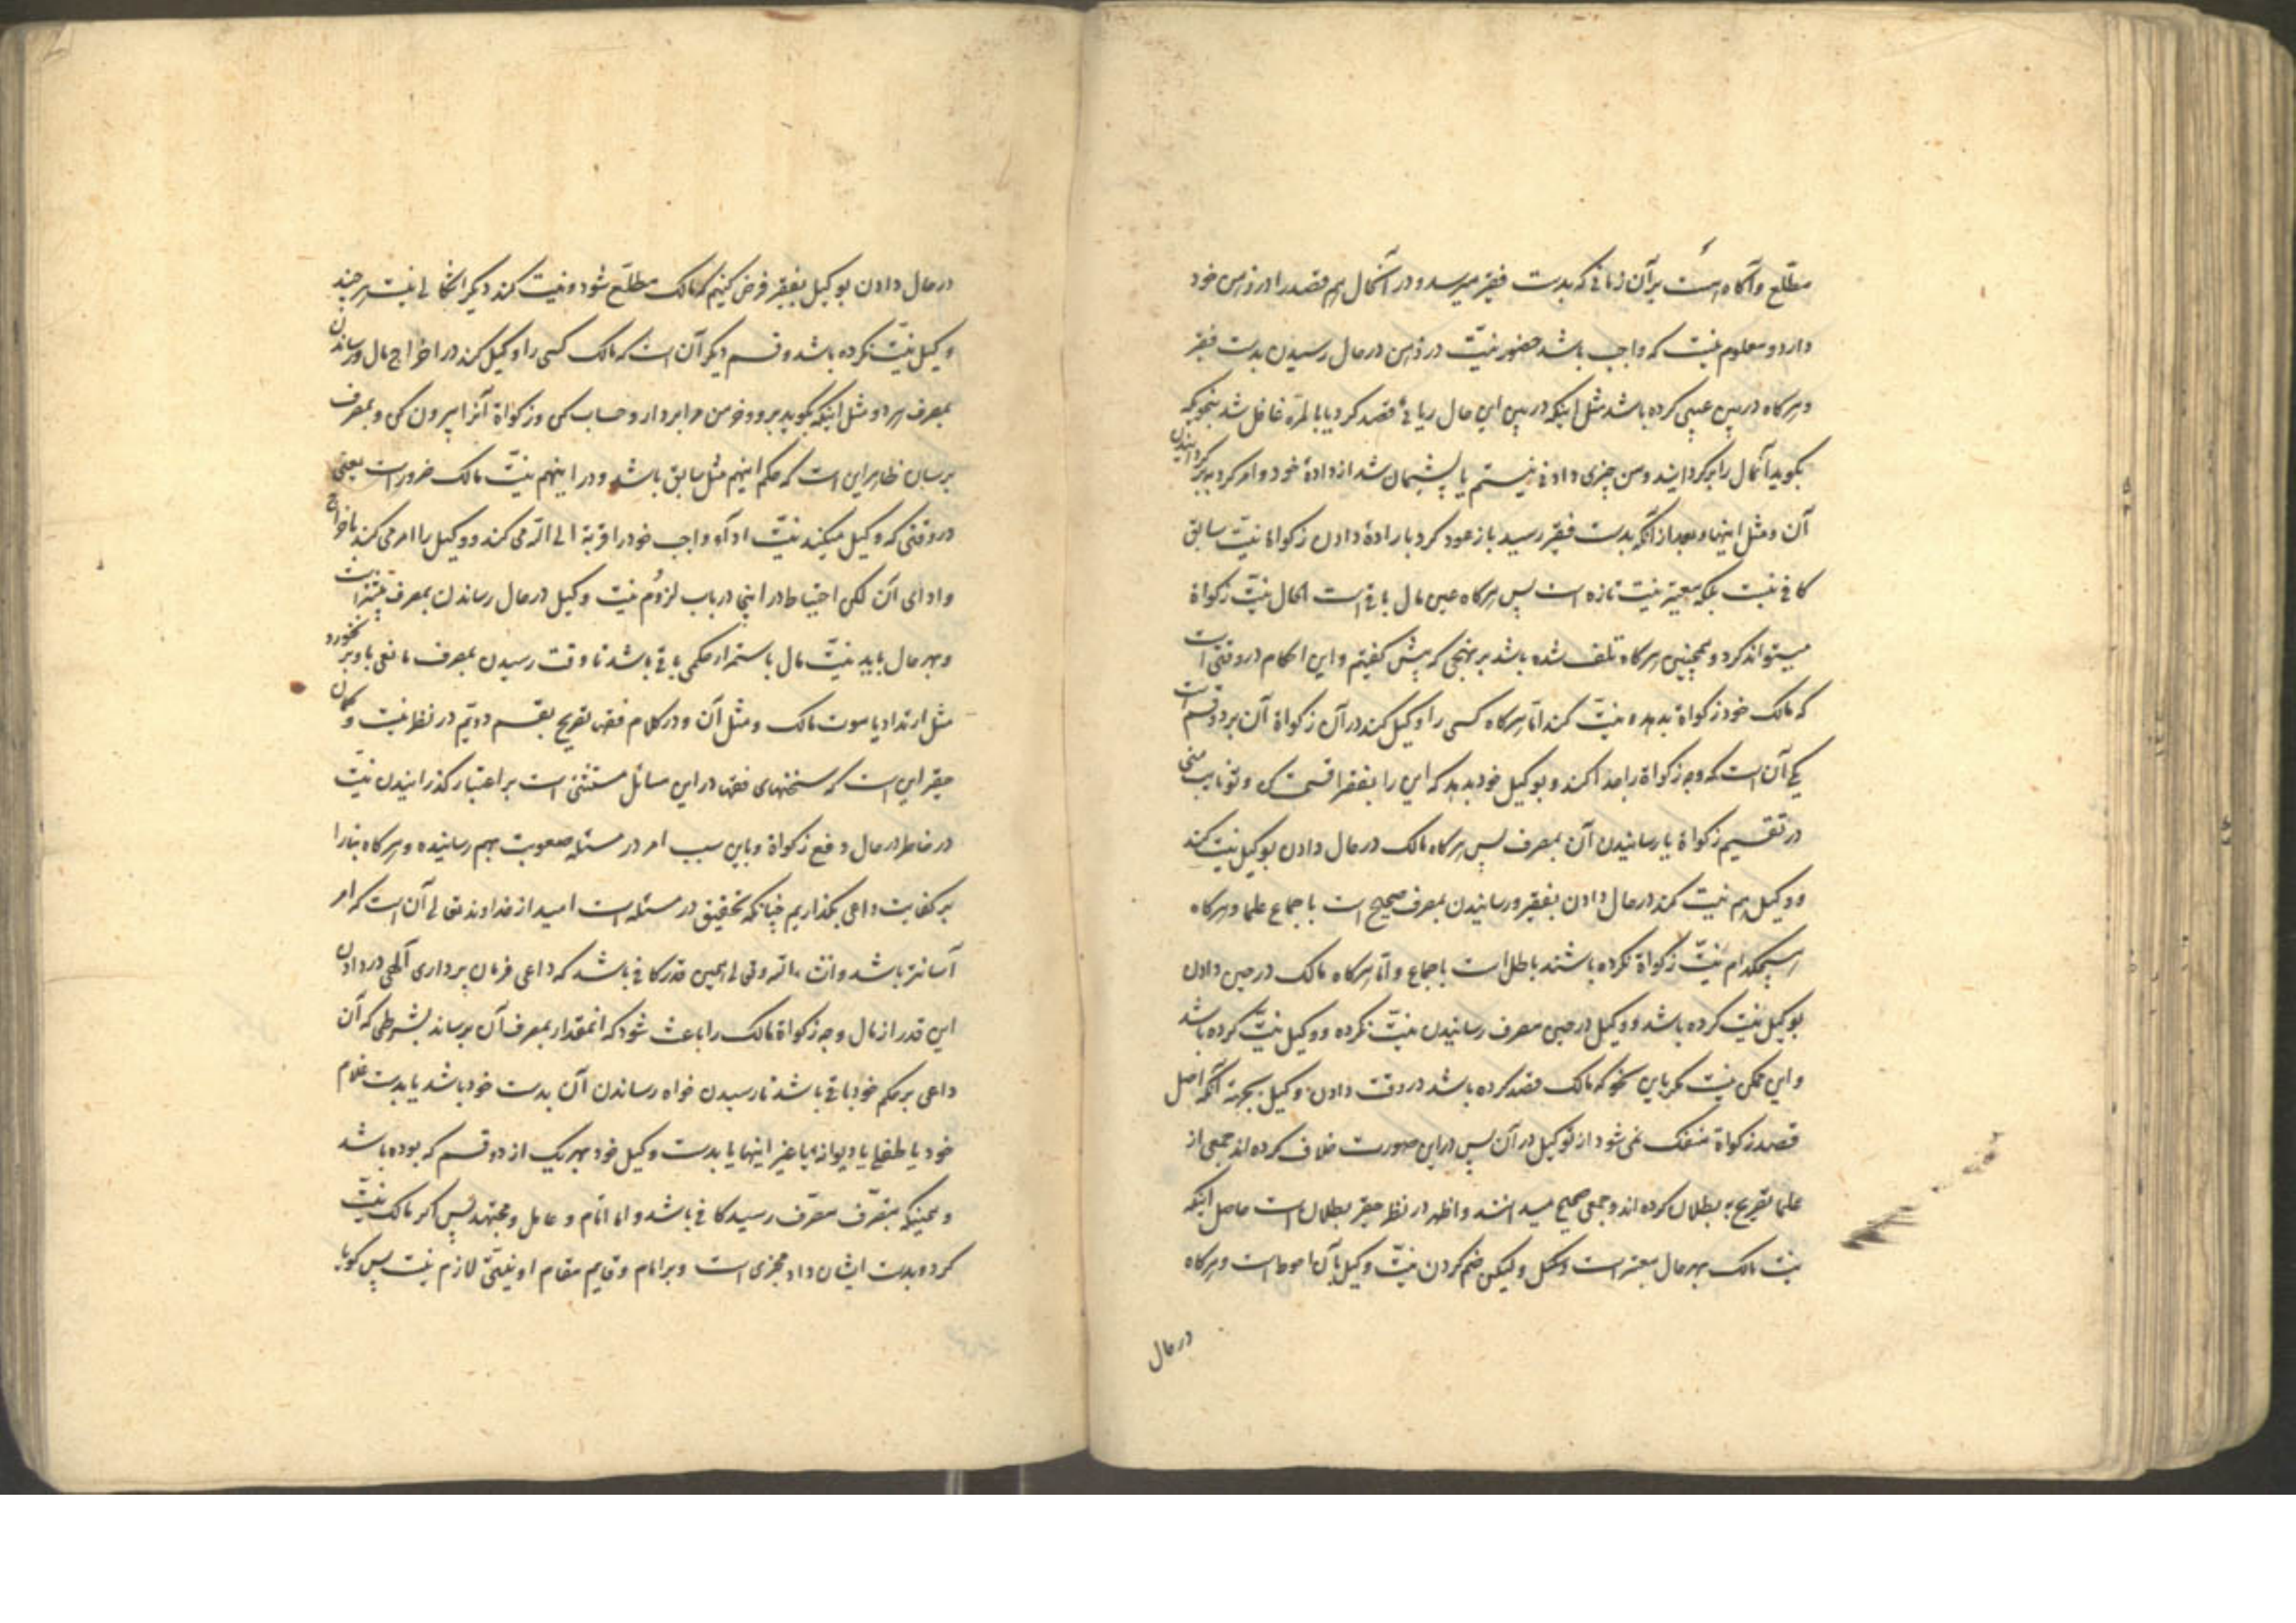 مطّلع و آگاه است بر آن زمانی که بدست فقیر میرسد و در آنحال هم قصد را در ذهن خود
دارد و معلوم نیست که واجب باشد حضور نیّت در ذهن در حال رسیدن بدست فقیر
و هرگاه در بین عیبی کرده باشد مثل اینکه در بین این حال ریائی قصد کرد یا بالمرّه غافل شد بنحویکه
بگوید آنمال را برگردانید و من چیزی دادنی نیستم یا پشیمان شد از دادهٔ خود و امر کرد به برگردانیدن
آن و مثل اینها و بعد از آنکه بدست فقیر رسید باز عود کرد باراده دادن زکوة اما نیّت سابق
کافی نیست بلکه معتبر نیّت تازه است پس هرگاه عین مال باقی است الحال نیّت زکواة
میتواند کرد و همچنین هرگاه تلف شده باشد بر نهجی که پیش گفتیم و این احکام در وقتی است
که مالک خود زکواة بدهد و نیّت کند امّا هرگاه کسی را وکیل کند در آن زکواة آن بر دو قسم است
یکی آن است که وجه زکواة را جدا کند و بوکیل خود بدهد که این را بفقرا قسمت کن و تو نایب منی
در تقسیم زکواة یا رسانیدن آن بمصرف پس هرگاه مالک در حال دادن بوکیل نیّت کند
و وکیل هم نیّت کند در حال دادن بفقیر و رسانیدن بمصرف صحیح است باجماع علما و هرگاه
هیچکدام نیّت زکواة نکرده باشند باطل است باجماع و امّا هرگاه مالک در حین دادن
بوکیل نیّت کرده باشد و وکیل در حین مصرف رسانیدن نیّت نکرده و وکیل نیّت کرده باشد
و این ممکن نیست مگر باین نحو که مالک قصد کرده باشد در وقت دادن بوکیل بجهة آنکه اصل
قصد زکواة منفک نمی شود از توکیل در آن پس در این صورت خلاف کرده اند جمعی از
علما تصریح به بطلان کرده اند و جمعی صحیح میدانند و اظهر در نظر حقیر بطلان است حاصل اینکه
نیّت مالک بهر حال معتبر است و لیکن ضم کردن نیّت وکیل بآن احوط است و هرگاه
در حال
در حال دادن بوکیل بفقیر فرض کنیم که مالک مطلّع شود و نیّت کند دیگر اشکالی نیست هر چند
وکیل نیّت نکرده باشد و قسم دیگر آن است که مالک کسی را وکیل کند در اخراج مال و رساندن
بمصرف هر دو مثل اینکه بگوید برو و خرمن مرا بردار و حساب کن و زکواة آنرا بیرون کن و بمصرف
برسان ظاهر این است که حکم اینهم مثل سابق باشد و در اینهم نیّت مالک ضرور است یعنی
در وقتی که وکیل میکند نیّت ادای واجب خود را قربة الی الله می کند و وکیل را امر می کند باخراج
و ادای آن لکن احتیاط در اینجا در باب لزوم نیّت وکیل در حال رساندن بمصرف بیشتر است
و بهر حال باید نیّت مال باستمرار حکمی باقی باشد تا وقت رسیدن بمصرف مانعی باو بر نخورد
مثل ارتداد یا موت مالک و مثل آن و در کلام فقها تصریح بقسم دویّم در نظر نیست و گمان
حقیر این است که سخنهای فقها در این مسائل مبتنی است بر اعتبار گذرانیدن نیّت
در خاطر در حال دفع زکواة و باین سبب امر در مسئله صعوبت بهم رسانیده و هرگاه بنا را
بر کفایت داعی بگذاریم چنانکه تحقیق در مسئله است امید از خداوند تعالی آن است که امر
آسانتر باشد و انشاء الله تعالی همین قدر کافی باشد که داعی فرمان برداری الهی در دادن
این قدر از مال وجه زکواة مالک را باعث شود که انمقدار بمصرف آن برساند بشرطی که آن
داعی بر حکم خود باقی باشد تا رسیدن خواه رساندن آن بدست خود باشد یا بدست غلام
خود یا طفل یا دیوانه یا غیر اینها یا بدست وکیل خود بهر یک از دو قسم که بوده باشد
و همینکه بتصرّف مصرف رسید کافی باشد و اما امام و عامل و مجتهد پس اگر مالک نیّت
کرد و بدست ایشان داد مجزی است و بر امام و قایم مقام او نیّتی لازم نیست پس گویا